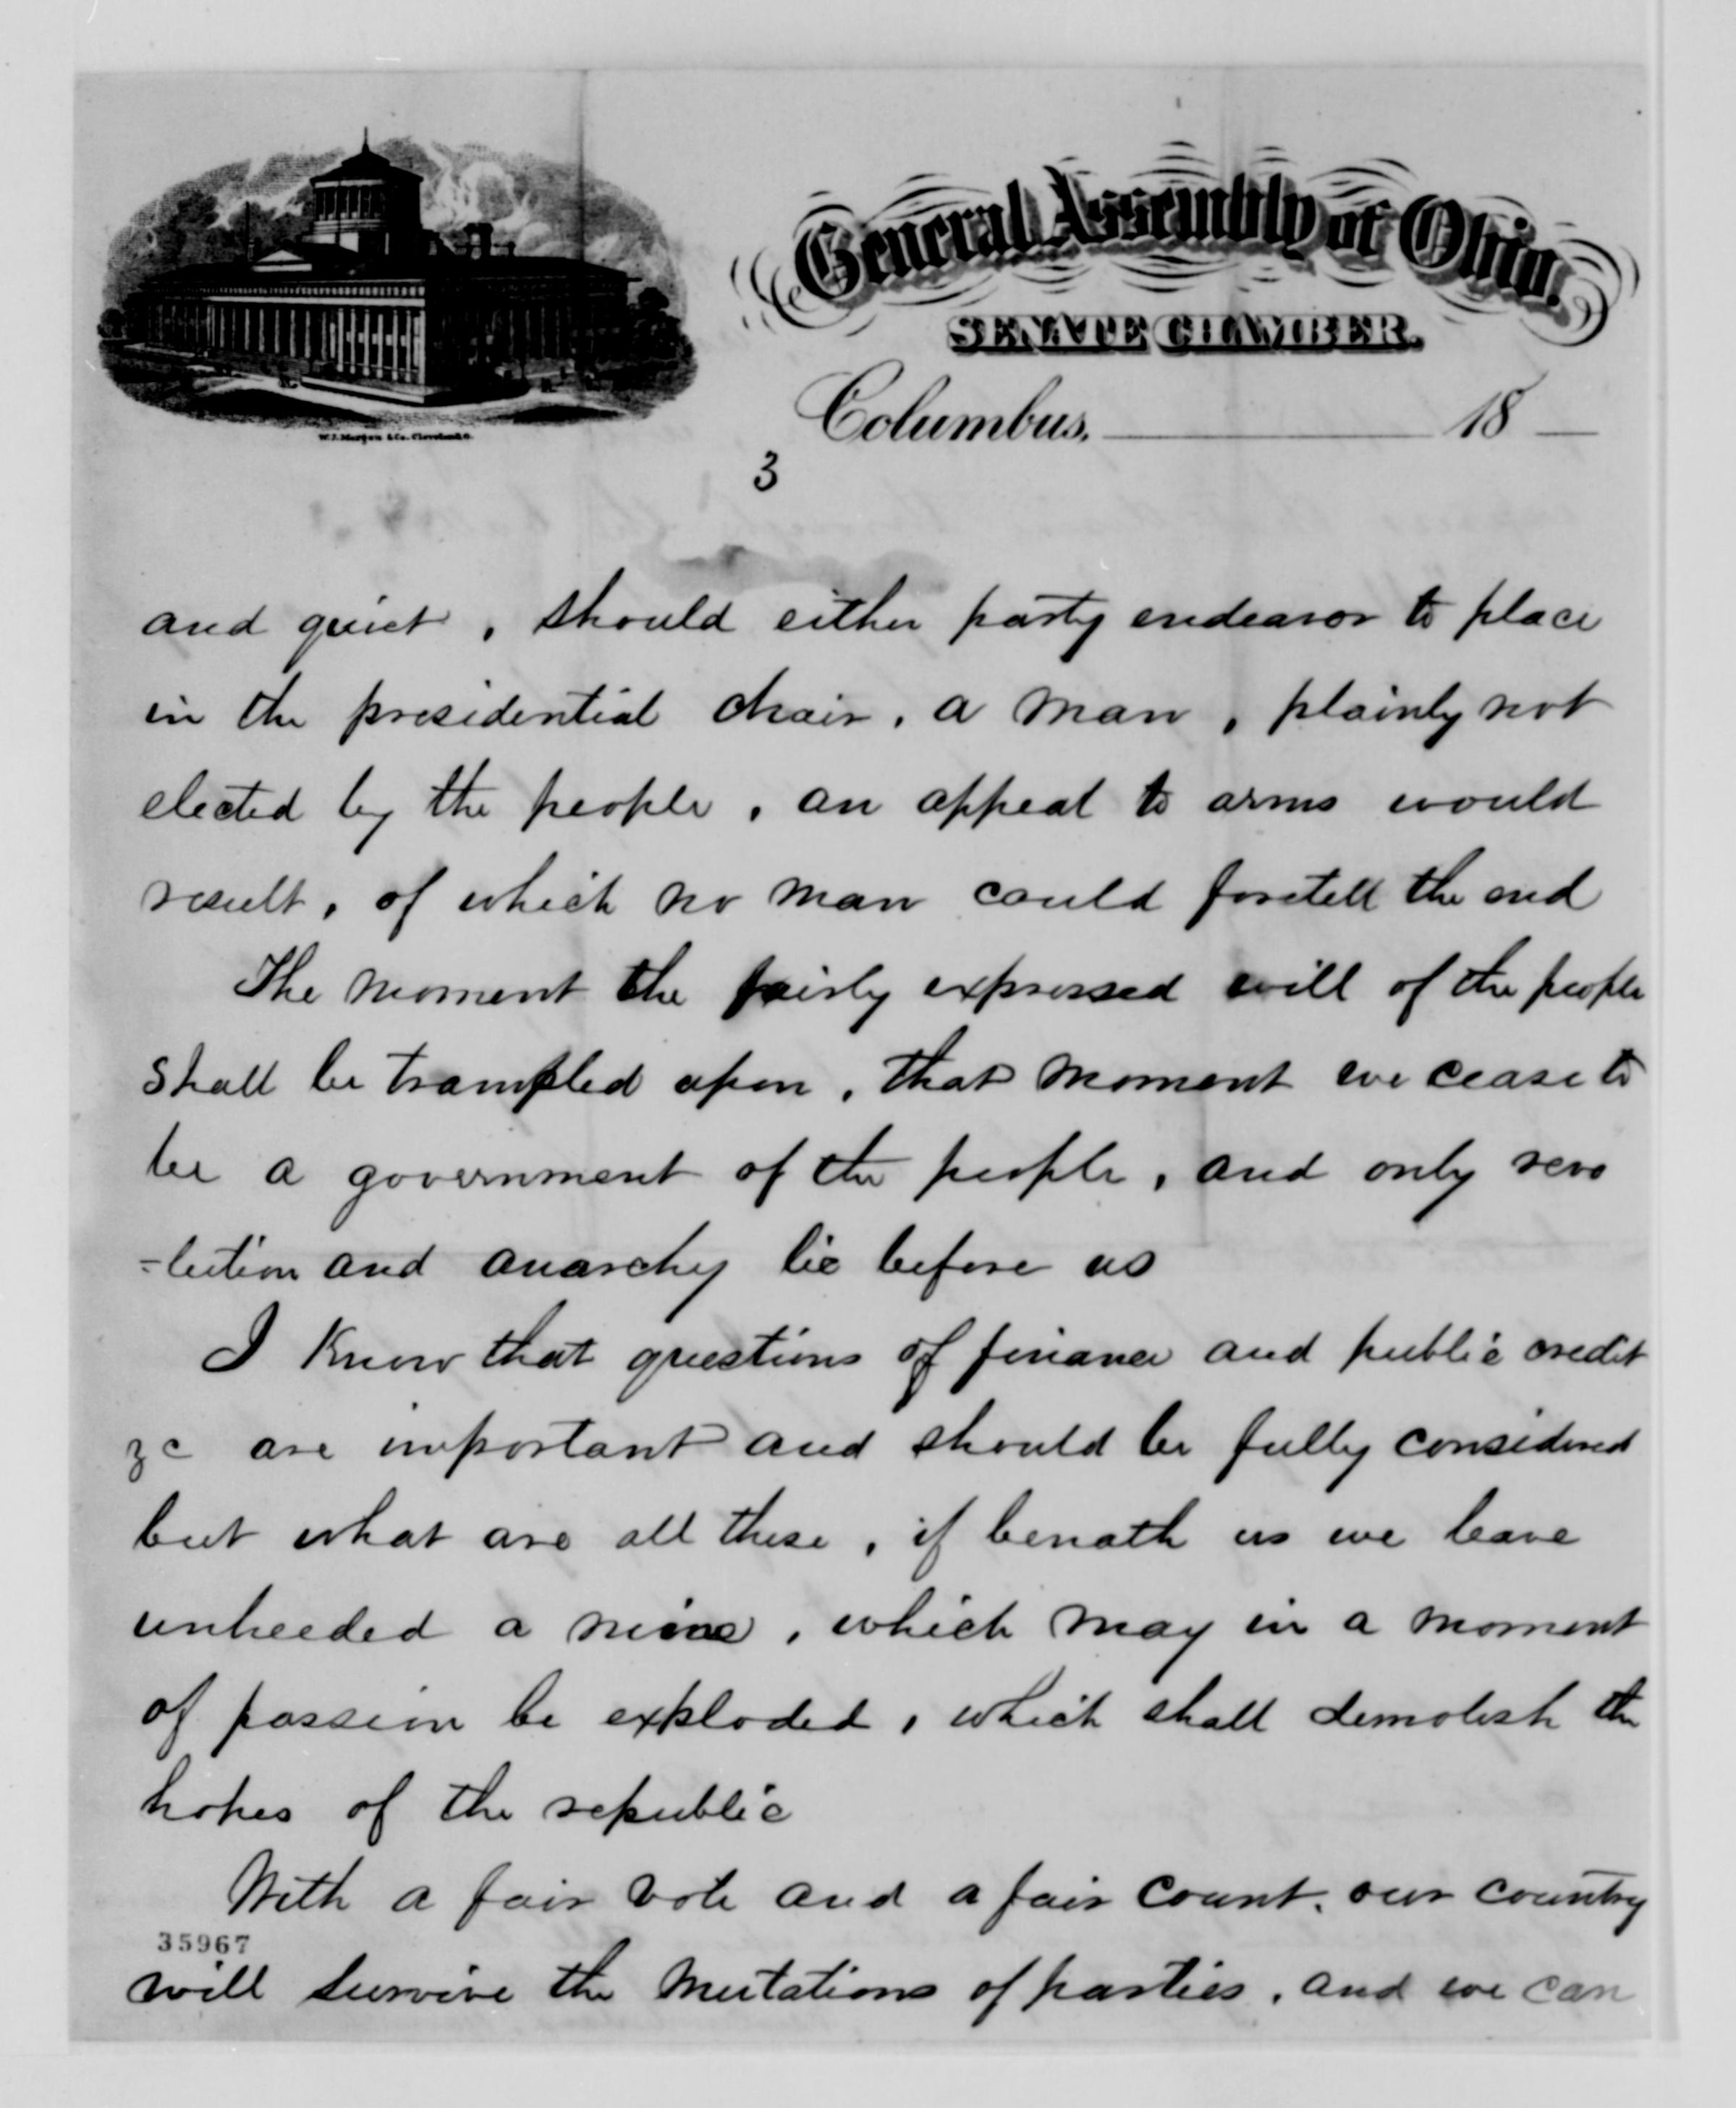 General Assembly of Ohio.
SENATE CHAMBER.
Columbus, 18
W.J. Morgan & Co. Cleveland, O.
3
and quiet, should either party endeavor to place
in the presidential chair, a man, plainly not
elected by the people, an appeal to arms would
result, of which no man could foretell the end
The moment the fairly expressed will of the people
shall be trampled upon, that moment we cease to
be a government of the people, and only revo
-lution and anarchy lie before us
I know that questions of finance and public credit
&c are important and should be fully considered
but what are all these, if benath us we leave
unheeded a mine, which may in a moment
of passion be exploded, which shall demolish the
hopes of the republic
With a fair vote and a fair count, our country
35967
will survive the mutations of parties, and we can